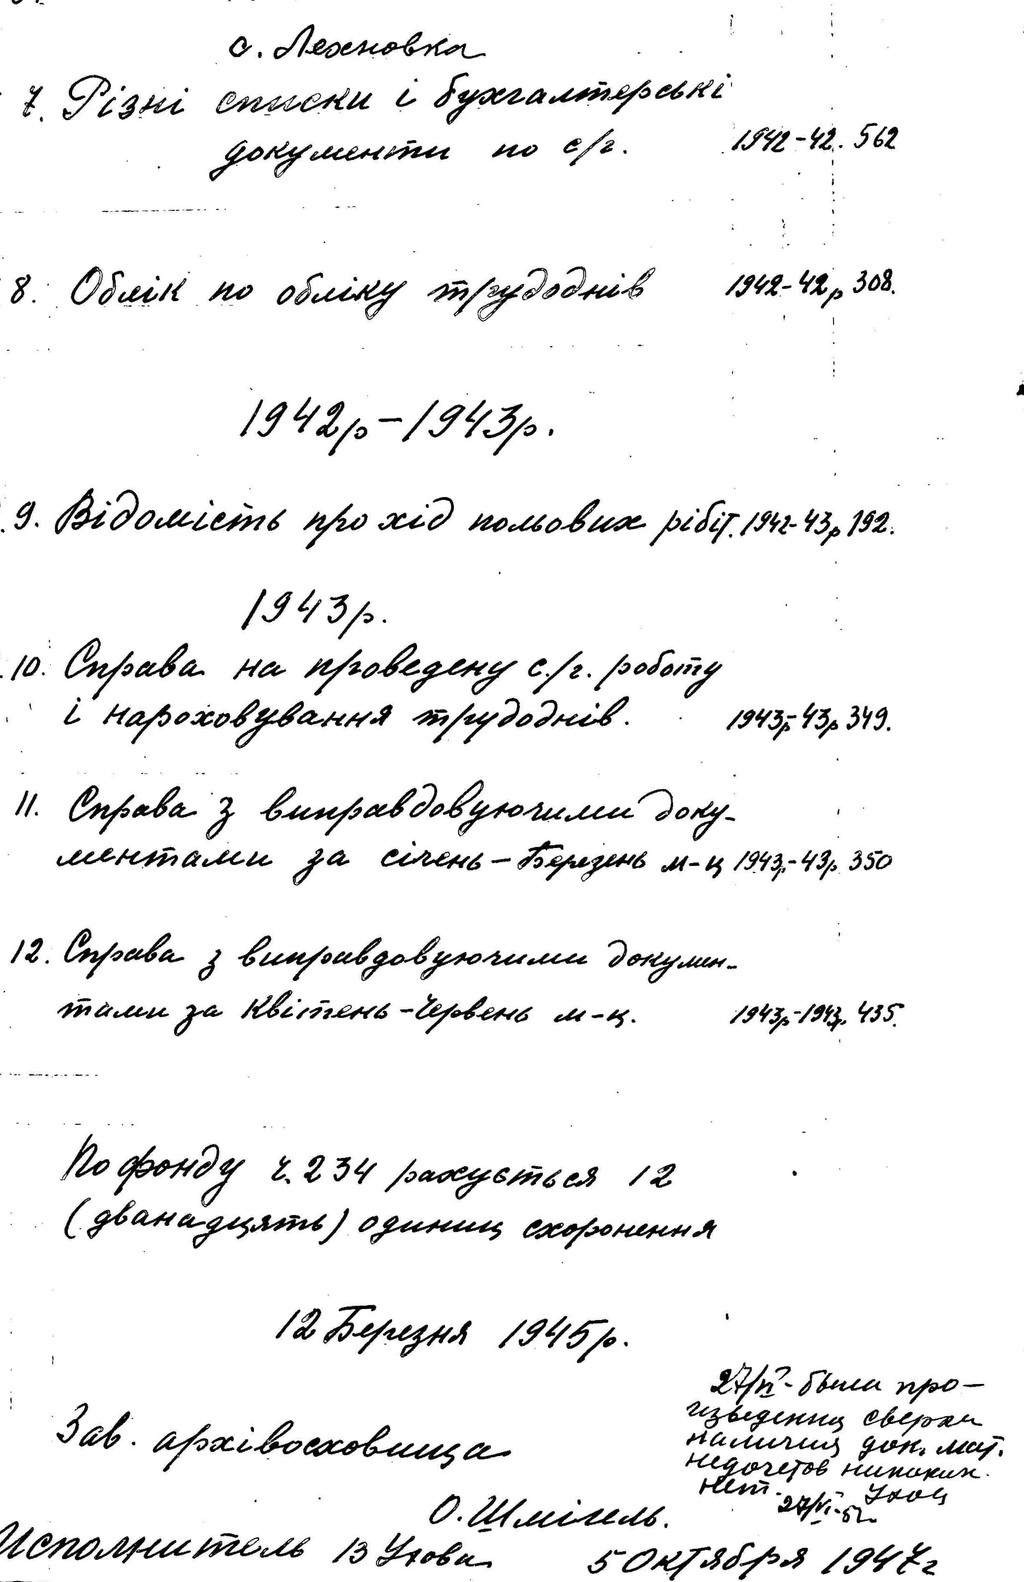 с. Лехновка
7. Різні списки і бухгалтерські
документи по с/г. 1942-42. 562
8. Облік по обліку трудоднів 1942-42р 308.
1942р-1943р.
9. Відомість про хід польових рібіт. 1942-43р 192.
1943р.
10. Справа на проведену с./г. роботу
і нароховування трудоднів. 1943р-43р 349.
11. Справа з виправдовуючими доку-
ментами за січень-Березень м-ц 1943р-43р. 350
12. Справа з виправдовуючими докумен-
тами за Квітень-Червень м-ц. 1943р-1943р. 435.
По фонду ч. 234 рахується 12
(дванадцять) одиниц схоронення
12 Березня 1945р.
Зав. архівосховища
О. Шмігель.
27/VI- были про-
изведенна сверка
наличия док. мат.
недочетов никаких
нет.
27/VI-52
Исполнитель 5 Октября 1947г